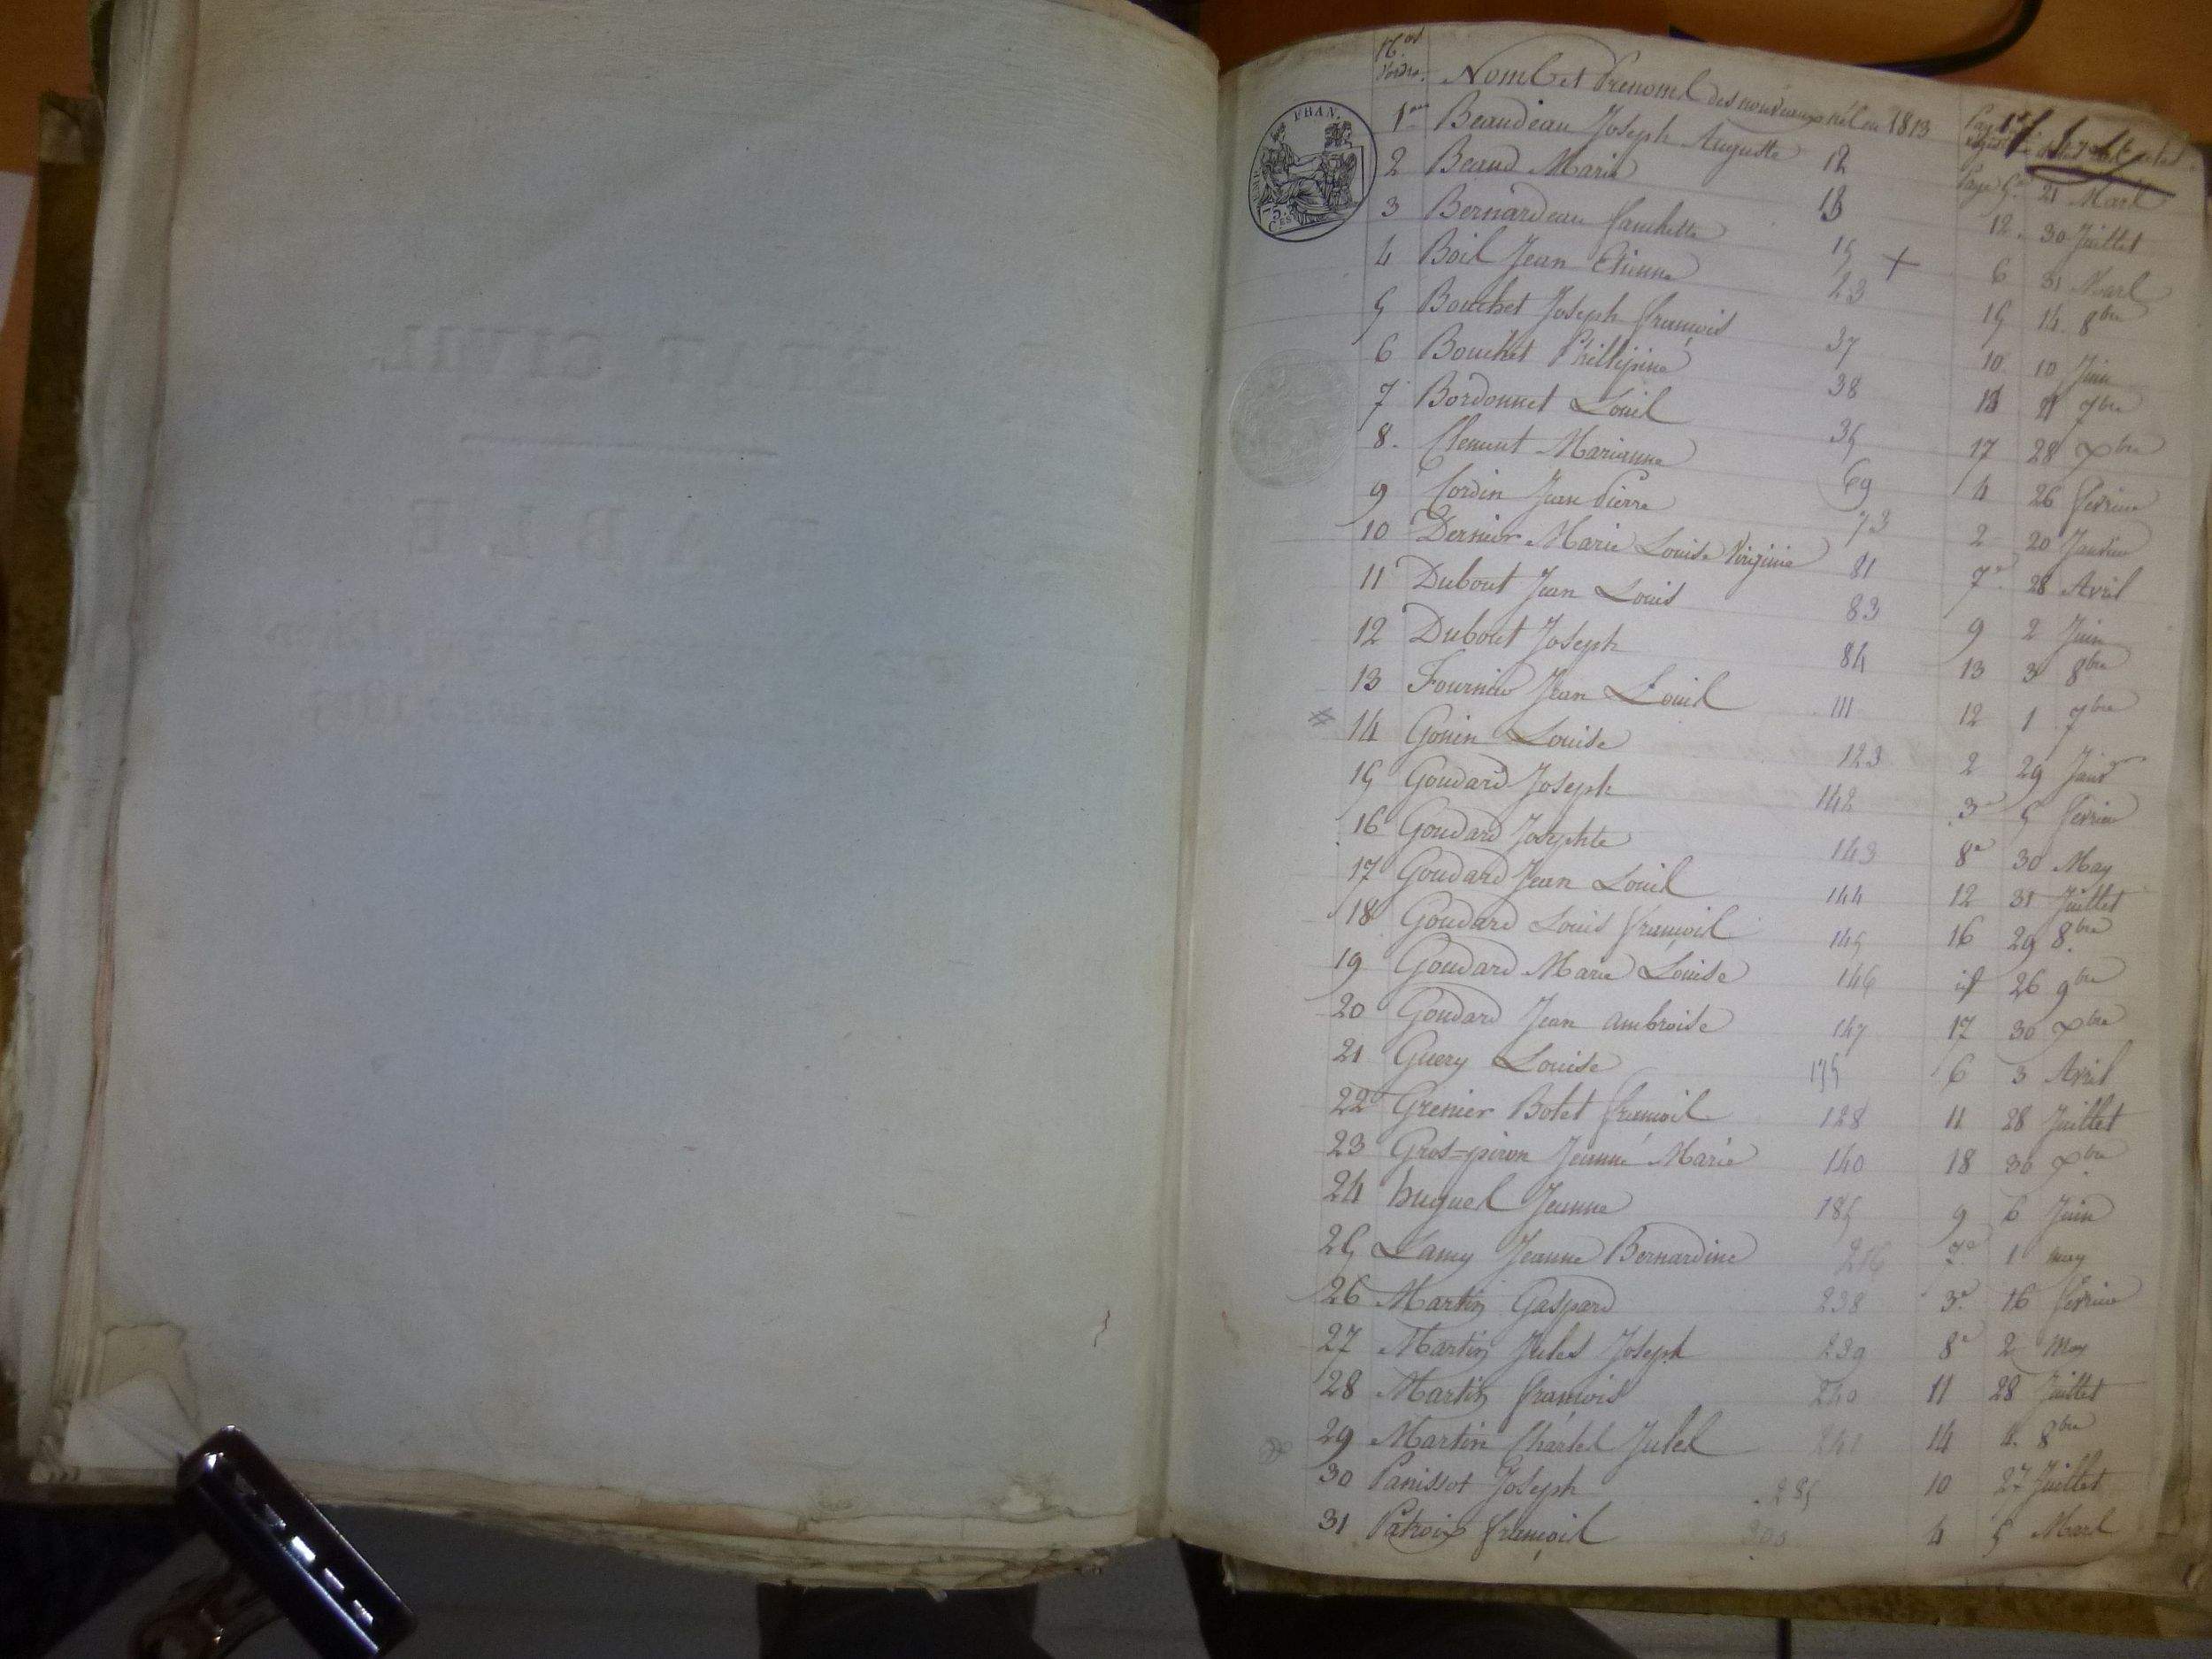 Nos d'ordre. Noms et Prenoms des nouveaux nés en 1813
EMP. FRAN.
75. CES
1er Beaudeau Joseph Auguste 12 Page 5e 21 Mars
2 Beaud Marie 13 12. 30 Juillet
3 Bernardeau fanchette 15 + 6 31 Mars
4 Boil Jean Etienne 23 15 14. 8bre
5 Bouchet Joseph françois 37 10. 10 Juin
6 Bouchet Phillipine 38 13 21 7bre
7 Bordonnet Louis 35 17 28 Xbre
8. Clement Marianne 69 4 26 fevrier
9 Cordin Jean Pierre 73 2 20 Janvier
10 Dernier Marie Louise Virginie 81 7e 28 Avril
11 Dubout Jean Louis 83 9 2 Juin
12 Dubout Joseph 84 13 3 8bre
13 Fournier Jean Louis 111 12 1 7bre
14 Gonin Louise 123 2 29 Janvr
15 Goudard Joseph 142 3e 5 fevrier
16 Goudard Josephte 143 8e 30 May
17 Goudard Jean Louis 144 12 31 Juillet
18 Goudard Louis françois 145 16 29 8bre
19 Goudard Marie Louise 146 id 26 9bre
20 Goudard Jean ambroise 147 17 30 Xbre
21 Guery Louise 175 6 3 Avril
22 Grenier Botet françois 128 11 28 Juillet
23 Gros=piron Jeanne Marie 140 18 30 Xbre
24 huguel Jeanne 185 9 6 Juin
25 Lamy Jeanne Bernardine 216 7e 1 may
26 Martin Gaspard 238 3e 16 fevrier
27 Martin Jules Joseph 239 8e 2 May
28 Martin françois 240 11 28 Juillet
29 Martin Charles Jules 241 14 4. 8bre
30 Panissot Joseph 285 10 27 Juillet
31 Patroix françois 300 4 5 Mars